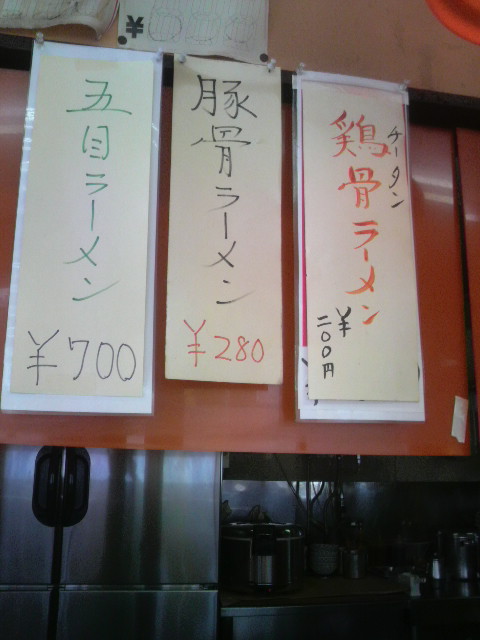 五目ラーメン
¥700
豚骨ラーメン
¥280
鶏骨ラーメン
チータン
¥二〇〇円